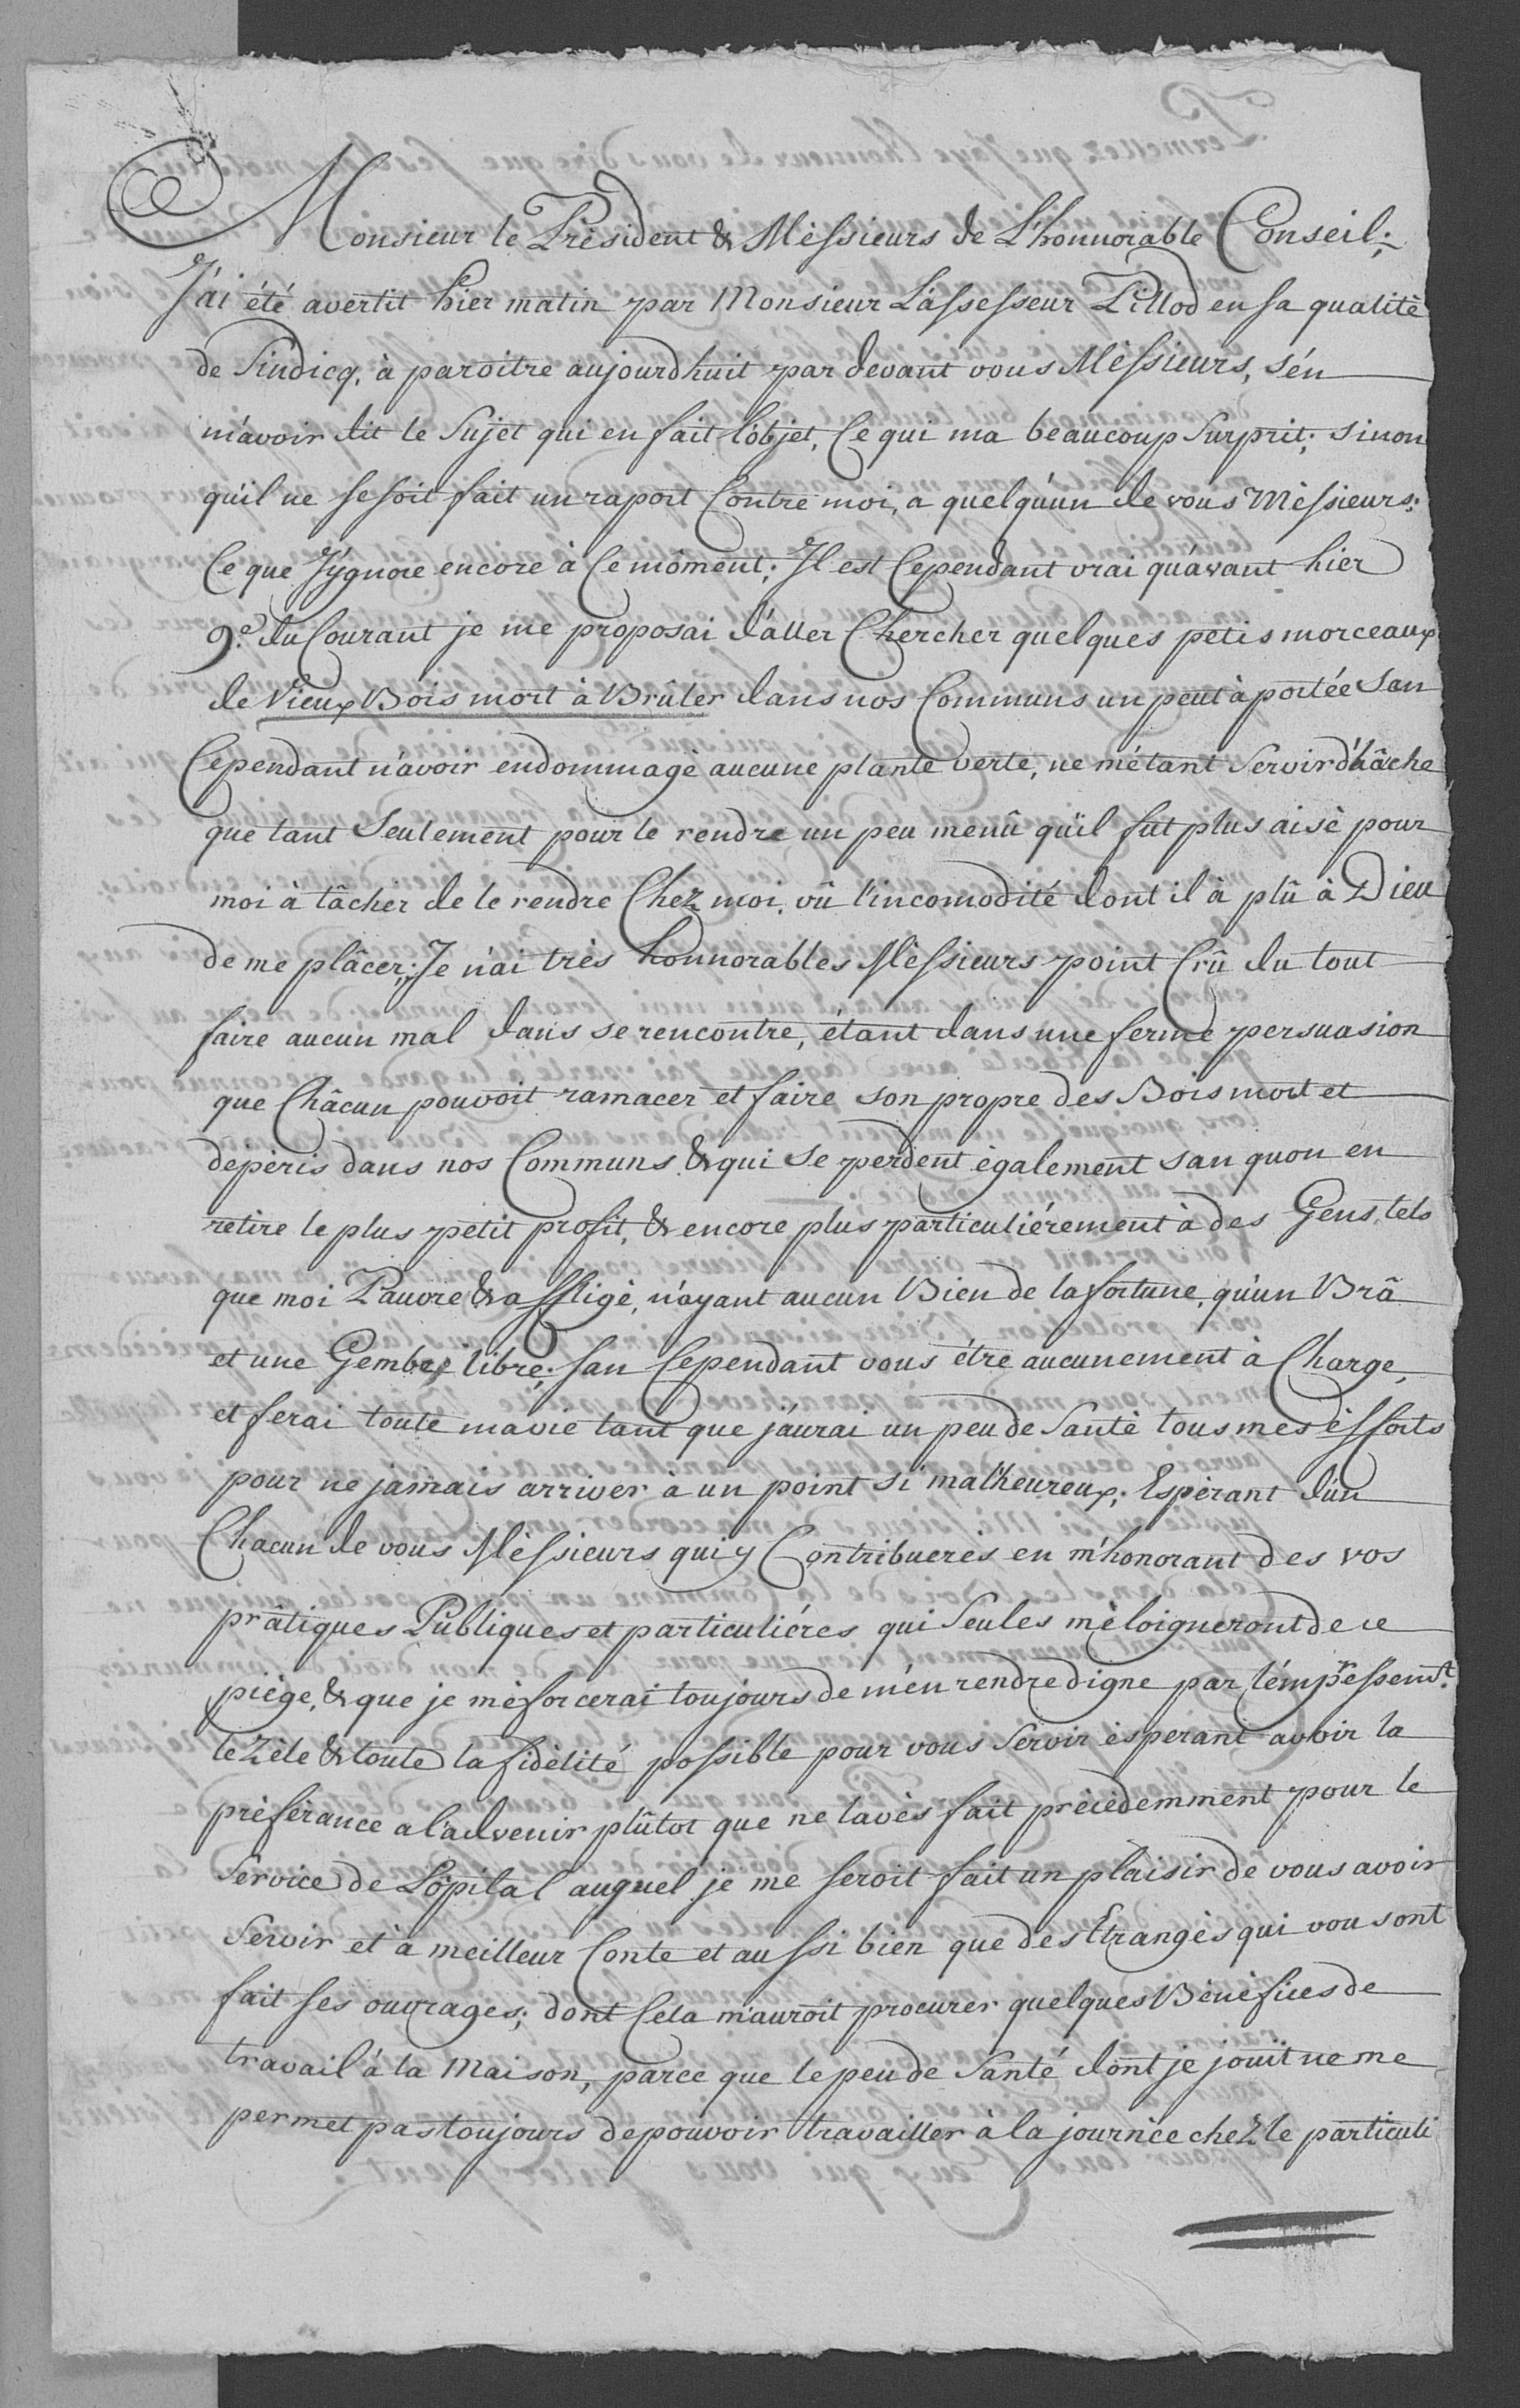 Monsieur le Président & Mèssieurs de L'honnorable Conseil;
J'ai été avertit hier matin par Monsieur L'assesseur Pillod en sa qualitè
de Sindicq, à paroitre aujourdhuit par devant vous Mèssieurs, s'én
m'avoir dit le Sujet qui en fait l'objet, Ce qui ma beaucoup Surprit; sinon
qu'il ne se soit fait un raport Contre moi, a quelqu'un de vous Mèssieurs;
Ce que J'ygnore encore à Ce môment; Il est Cependant vrai qu'avant hier
9e. du Courant je me proposai d'aller Chercher quelques petis morceaux
de Vieux Bois mort à Brûler dans nos Communs un peut à portée San
Cependant n'avoir endommagè aucune plante verte, ne m'étant Servir d'hâche
que tant Seulement pour le rendre un peu menû qu'il fut plus aisè pour
moi à tâcher de le rendre Chez moi, vû l'incomodité dont il à plû à Dieu
de me plâcer; Je n'ai très honnorables Mèssieurs point Crû du tout
faire aucun mal dans se rencontre, étant dans une ferme persuasion
que Châcun pouvoit ramacer et faire son propre des Bois mort et
dépéris dans nos Communs & qui se perdent ègalement san quon en
retire le plus petit profit, & encore plus particuliérement à des Gens, tels
que moi Pauvre & affligè, n'ayant aucun Bien de la fortune, qu'un Brâ
et une Gembe libre; san Cependant vous étre aucunement à Charge,
et ferai toute ma vie tant que j'aurai un peu de Santè tous mes èfforts
pour ne jamais arriver à un point si mal'heureux; Espèrant d'un
Chacun de vous Mèssieurs qui y Contribuerés en m'honorant des vos
prâtiques Publiques et particuliéres qui Seules m'èloigneront de ce
piége, & que je m'èforcerai toujours de m'én rendre digne par l'émpressemt.
le Zèle & toute la fidèlité possible pour vous Servir èsperant avoir la
préférance a l'advenir plûtot que ne lavés fait précèdemment pour le
Service de L'opital auquel je me seroit fait un plaisir de vous avoir
Servir et à meilleur Conte et aussi bien que des Etrangès qui vou sont
fait ses ouvrages; dont Cela m'auroit procurer quelques Bènèfices de
travail à la Maison, parce que le peu de Santé dont je jouït ne me
permet pas toujours de pouvoir travailler à la journèe chez le particuli